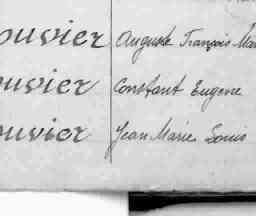 ouvier Auguste François Mar
ouvier Constant Eugene
ouvier Jean Marie Louis